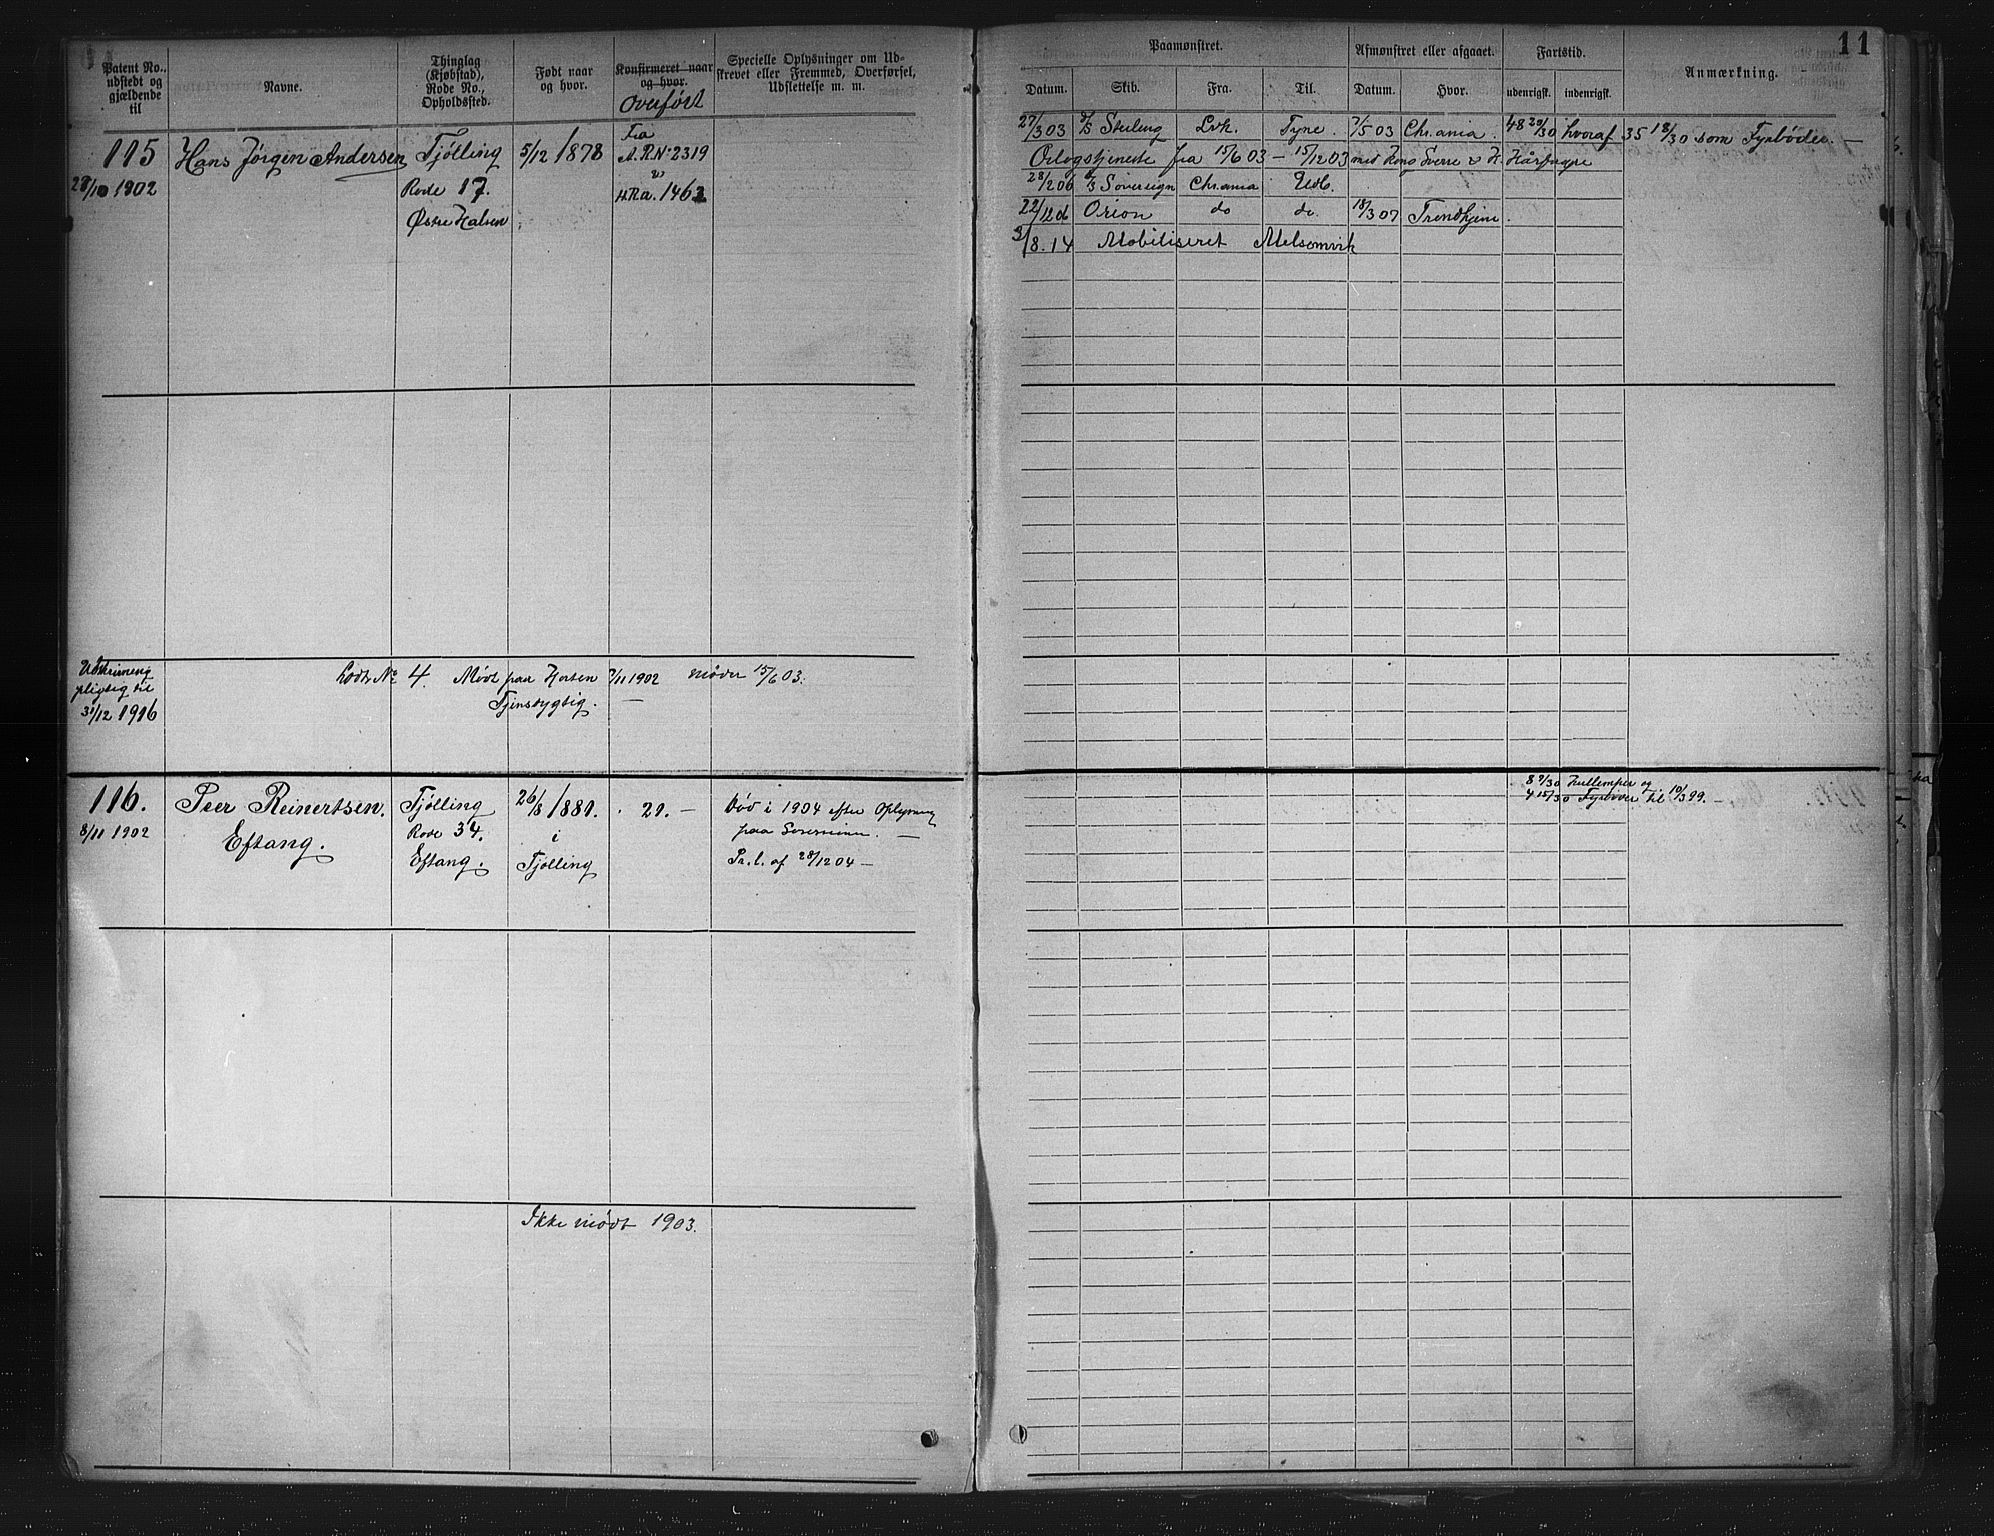 11
Patent No.,
udstedt og
gjældende
til
Navne.
Thinglag
(Kjøbstad),
Rode No.,
Opholdssted.
Født naar
og hvor.
Konfirmeret naar
og hvor.
Overført
Specielle Oplysninger om Ud-
skrevet eller Fremmed, Overførsel,
Udslettelse m. m.
Paamønstret.
Afmønstret eller afgaaet.
Fartstid.
Anmærkning.
Datum.
Skib.
Fra.
Til.
Datum.
Hvor.
udenrigsk.
indenrigsk.
115
28/10 1902
Hans Jørgen Andersen
Tjølling
Rode 17.
Østre Halsen
5/12 1878
Fra
A.R.No 2319
H.Ra. 1462
27/3 03 D/S Sterling Lvk. Tyne. 7/5 03 Chr.ania. 48 20/30 hvoraf 35 18/30 som Fyrbøder. —
Orlogstjeneste fra 15/6 03 — 15/12 03 med Kong Sverre & H. Hårfagre
28/2 06 D/S Sovereign Chr.ania Udl.
22/12 06 Orion do do. 18/3 07 Trondhjem.
3/8.14 Mobiliseret Melsomvik
Udskrivning
pligtig til
31/12 1916
Lodtr No 4. Mødt paa Horten 7/11 1902 møder 15/6 03.
Tjenstdygtig. —
116.
8/11 1902
Peer Reinertsen.
Eftang.
Tjølling
Rode 34.
Eftang.
26/8 1881.
i
Tjølling
21. —
Død i 1904 efter Oplysning
paa Sesessionen. —
Pr. l. af 28/12 04 —
8 9/30 Kullemper og
4 15/30 Fyrbøder til 10/3 99. —
Ikke mødt 1903.